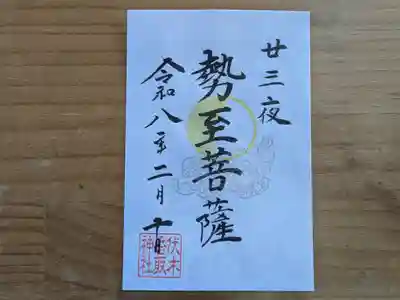 廿三夜
勢至菩薩
令和八年二月十日
伏木
香取
神社